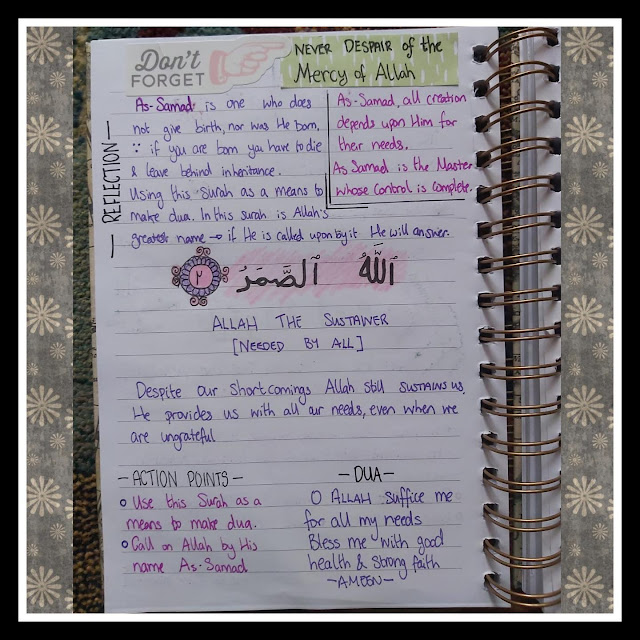 Don't
FORGET
NEVER DESPAIR of the
Mercy of Allah
REFLECTION
As-Samad is one who does
not give birth, nor was He born,
∵ if you are born you have to die
& leave behind inheritance.
Using this Surah as a means to
make dua. In this surah is Allah's
greatest name → if He is called upon by it He will answer.
As-Samad, all creation
depends upon Him for
their needs.
As Samad is the Master
whose control is complete.
ٱللَّهُ ٱلصَّمَدُ ٢
ALLAH THE SUSTAINER
[NEEDED BY ALL]
Despite our shortcomings Allah still SUSTAINS us.
He provides us with all our needs, even when we
are ungrateful
- ACTION POINTS -
o Use this Surah as a
means to make dua.
o Call on Allah by His
name As-Samad
- DUA -
O ALLAH suffice me
for all my needs
Bless me with good
health & strong faith
- AMEEN -